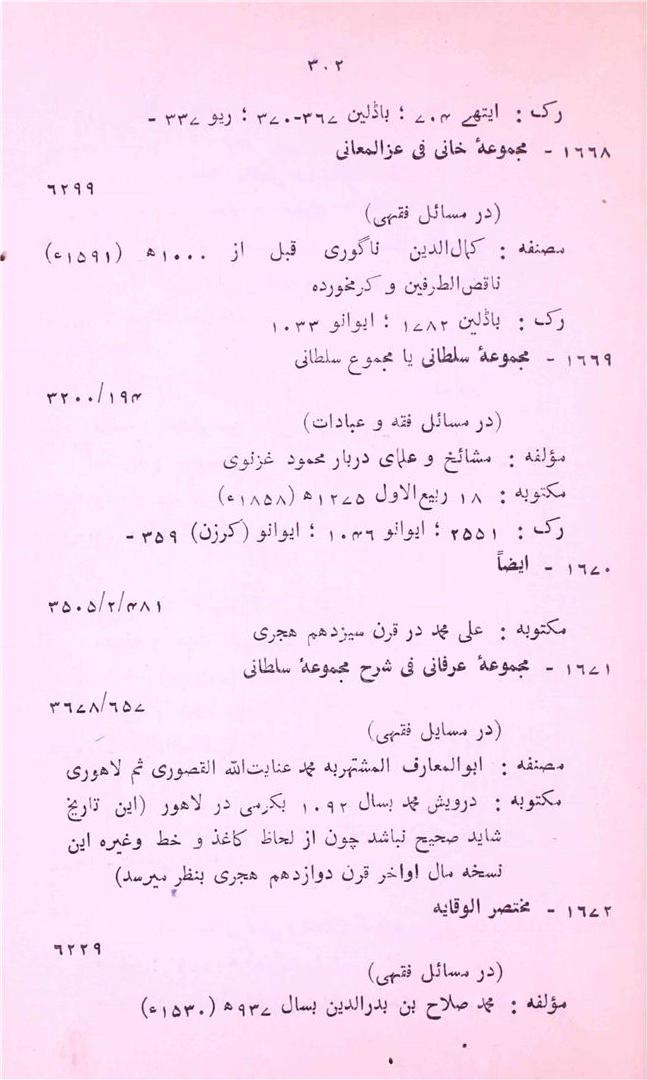 ۳۰۲
رک : ایتھے ۲۰۴ ؛ باڈلین ۳۶۷-۳۷۰ ؛ ریو ۳۳۷ -
۱۶۶۸ - مجموعهٔ خانی فی عزالمعانی
۶۲۹۹
(در مسائل فقهی)
مصنفه : کمال‌الدین ناگوری قبل از ۱۰۰۰ھ (۱۵۹۱ء)
ناقص‌الطرفین و کرمخورده
رک : باڈلین ۱۷۸۲ ؛ ایوانو ۱۰۳۳
۱۶۶۹ - مجموعهٔ سلطانی یا مجموع سلطانی
۳۲۰۰/۱۹۴
(در مسائل فقه و عبادات)
مؤلفه : مشائخ و علمای دربار محمود غزنوی
مکتوبه : ۱۸ ربیع‌الاول ۱۲۷۵ھ (۱۸۵۸ء)
رک : ۲۵۵۱ ؛ ایوانو ۱۰۴۶ ؛ ایوانو (کرزن) ۳۵۹ -
۱۶۷۰ - ایضاً
۳۵۰۵/۲/۴۸۱
مکتوبه : علی محمد در قرن سیزدهم هجری
۱۶۷۱ - مجموعهٔ عرفانی فی شرح مجموعهٔ سلطانی
۳۶۷۸/۶۵۷
(در مسایل فقهی)
مصنفه : ابوالمعارف المشتهربه محمد عنایت‌الله القصوری ثم لاهوری
مکتوبه : درویش محمد بسال ۱۰۹۲ بکرمی در لاهور (این تاریخ
شاید صحیح نباشد چون از لحاظ کاغذ و خط وغیره این
نسخه مال اواخر قرن دوازدهم هجری بنظر میرسد)
۱۶۷۲ - مختصر الوقایه
۶۲۲۹
(در مسائل فقهی)
مؤلفه : محمد صلاح بن بدرالدین بسال ۹۳۷ھ (۱۵۳۰ء)